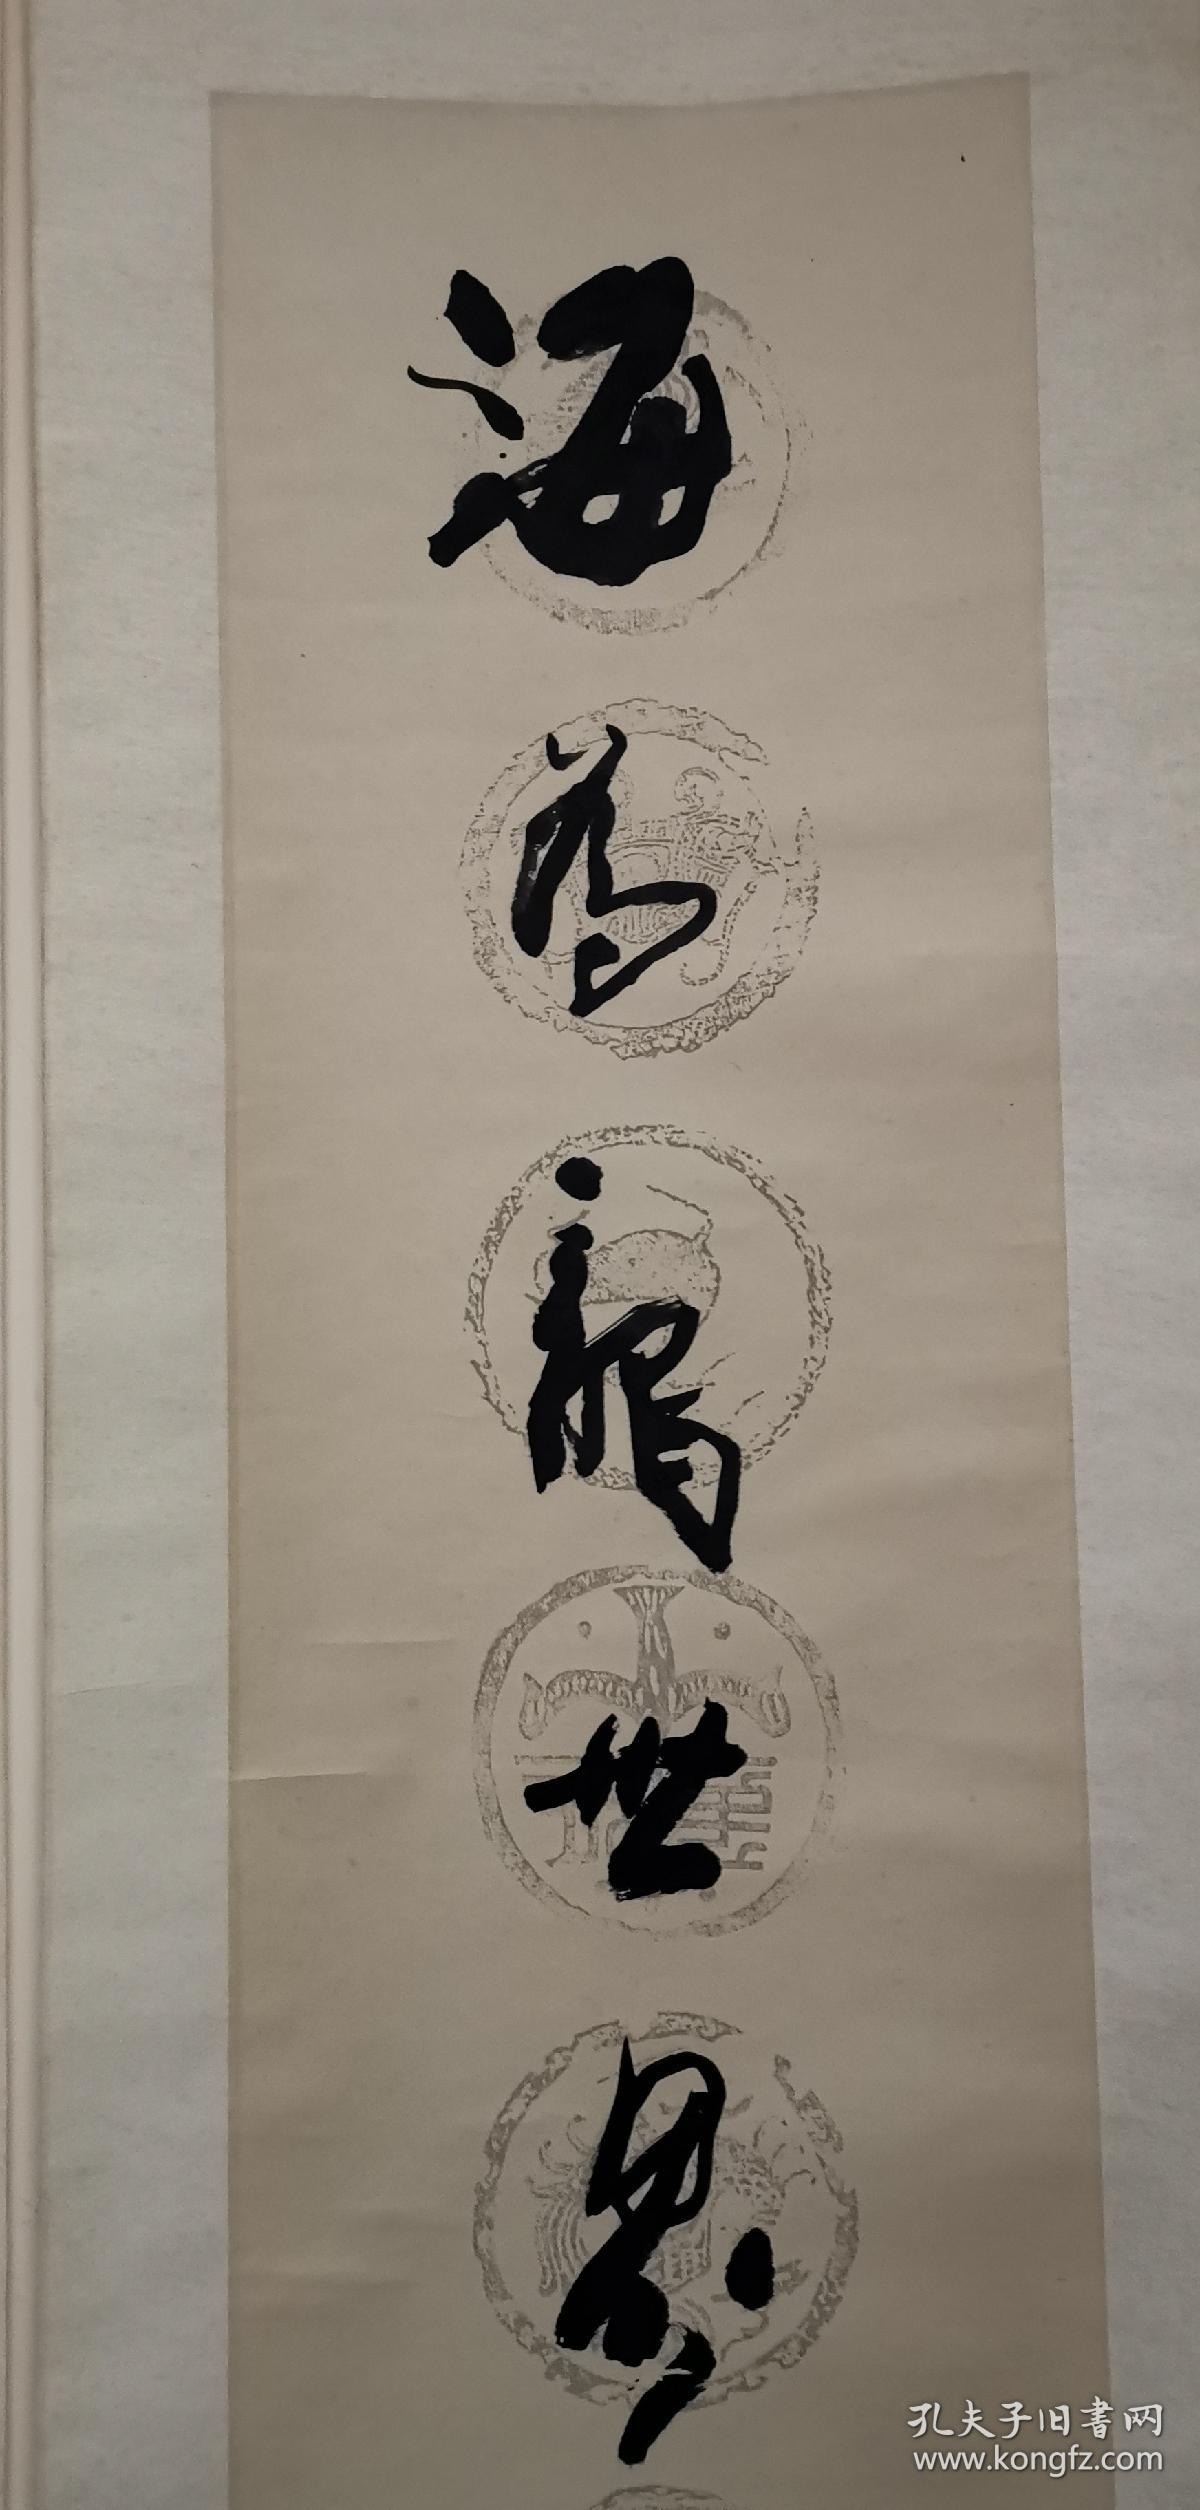 海为龍世界
孔夫子旧書网
www.kongfz.com